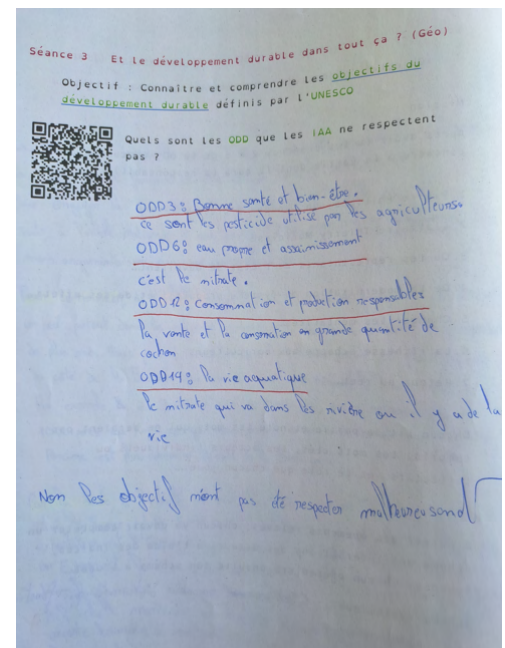 Séance 3 Et le développement durable dans tout ça ? (Géo)
Objectif : Connaître et comprendre les objectifs du
développement durable définis par l'UNESCO
Quels sont les ODD que les IAA ne respectent
pas ?
ODD3: Bonne santé et bien-être.
ce sont les pesticide utilisé par les agriculteurs.
ODD6: eau propre et assainissement
c'est le nitrate.
ODD12: consommation et production responsables
la vente et la consomation en grande quantité de
cochon
ODD14: la vie aquatique
le nitrate qui va dans les rivière ou il y a de la
vie
Non les objectif n'ont pas été respecter